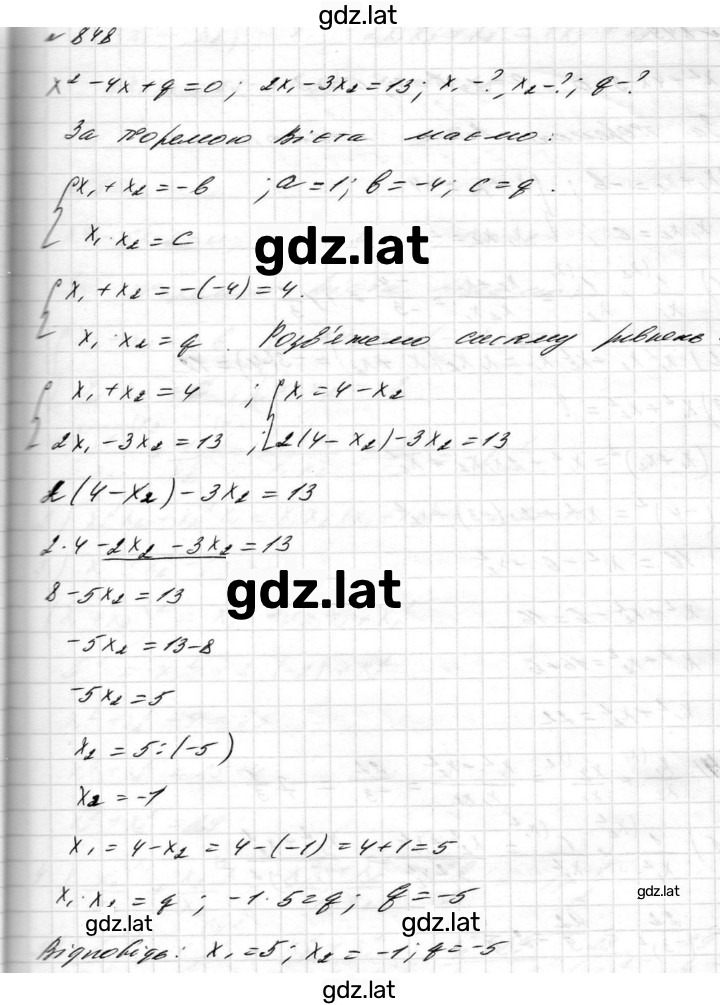 gdz.lat
№ 848
x² - 4x + q = 0; 2x₁ - 3x₂ = 13; x₁ - ?, x₂ - ?; q - ?
За теоремою Вієта маємо:
x₁ + x₂ = -b ; a = 1; b = -4; c = q.
x₁ · x₂ = c
gdz.lat
x₁ + x₂ = -(-4) = 4.
x₁ · x₂ = q. Розв'яжемо систему рівнянь
x₁ + x₂ = 4 ; x₁ = 4 - x₂
2x₁ - 3x₂ = 13 ; 2(4 - x₂) - 3x₂ = 13
2(4 - x₂) - 3x₂ = 13
2·4 - 2x₂ - 3x₂ = 13
8 - 5x₂ = 13
gdz.lat
-5x₂ = 13 - 8
-5x₂ = 5
x₂ = 5 : (-5)
x₂ = -1
x₁ = 4 - x₂ = 4 - (-1) = 4 + 1 = 5
x₁ · x₂ = q ; -1 · 5 = q; q = -5
gdz.lat
gdz.lat
gdz.lat
Відповідь: x₁ = 5; x₂ = -1; q = -5
gdz.lat